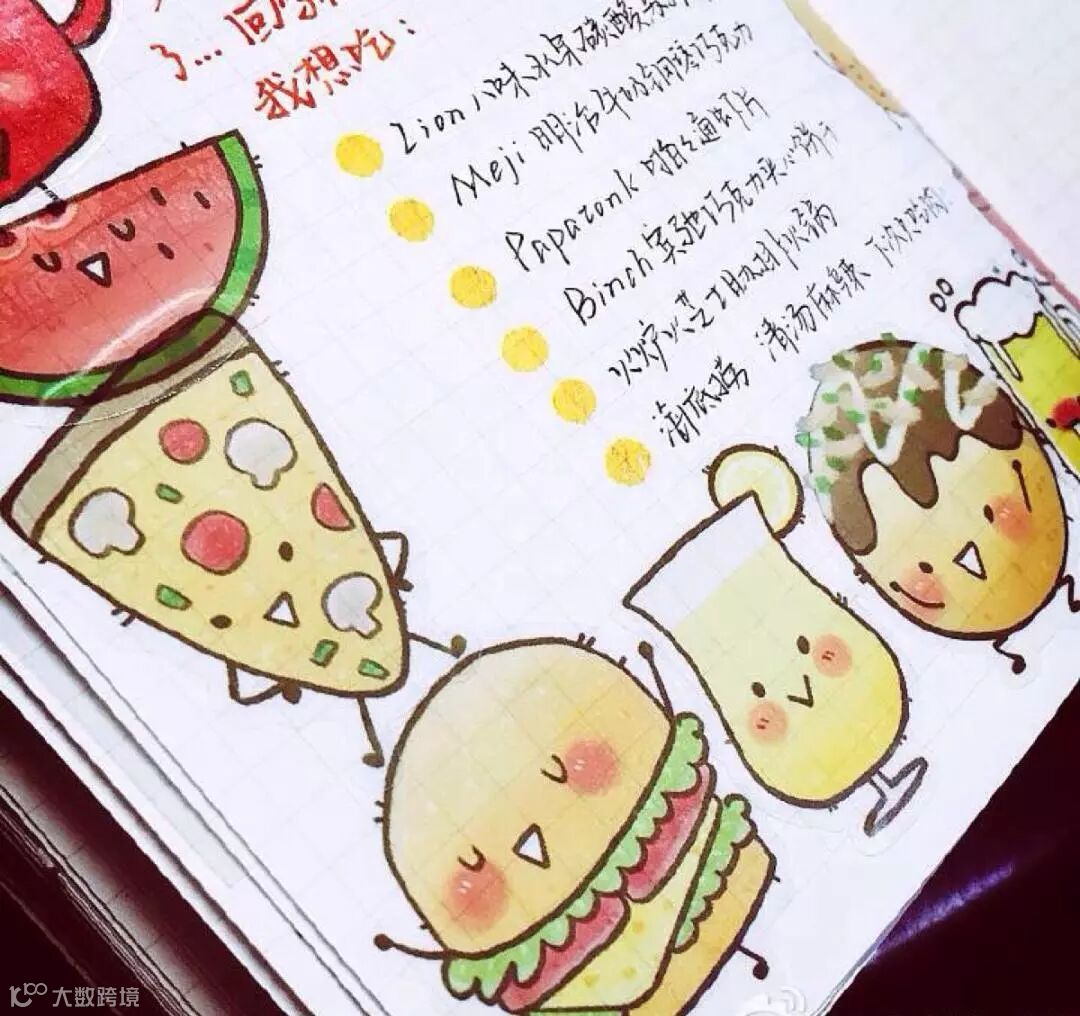 了...回
我想吃:
Lion 八味水果碳酸
Meji 明治牛奶钢琴巧克力
Papatonk 啪啪通虾片
Binch 宾驰巧克力夹心饼干
火炉火芝士肋排火锅
海底捞 清汤麻辣 下次吃
大数跨境